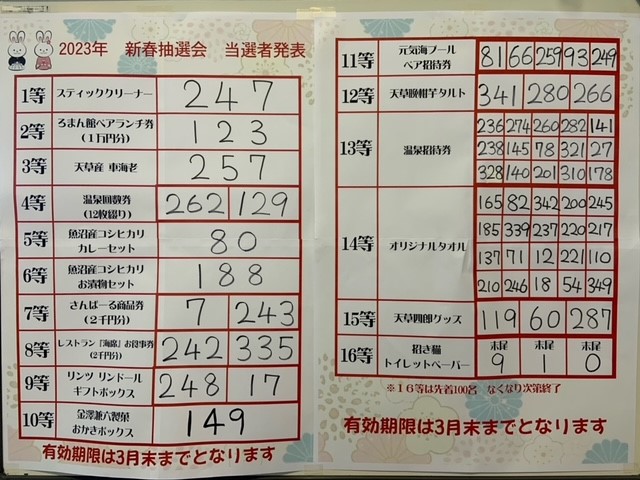 2023年 新春抽選会 当選者発表
1等 スティッククリーナー 247
2等 ろまん館ペアランチ券
(1万円分) 123
3等 天草産 車海老 257
4等 温泉回数券
(12枚綴り) 262 129
5等 魚沼産コシヒカリ
カレーセット 80
6等 魚沼産コシヒカリ
お漬物セット 188
7等 さんぱーる商品券
(2千円分) 7 243
8等 レストラン『海席』お食事券
(2千円分) 242 335
9等 リンツ リンドール
ギフトボックス 248 17
10等 金澤兼六製菓
おかきボックス 149
有効期限は3月末までとなります
11等 元気海プール
ペア招待券 81 66 259 93 249
12等 天草晩柑芋タルト 341 280 266
13等 温泉招待券
236 274 260 282 141
238 145 78 321 27
328 140 201 310 178
14等 オリジナルタオル
165 82 342 200 245
185 339 237 220 217
137 71 12 221 110
210 246 18 54 349
15等 天草四郎グッズ 119 60 287
16等 招き猫
トイレットペーパー
末尾 末尾 末尾
9 1 0
※16等は先着100名 なくなり次第終了
有効期限は3月末までとなります